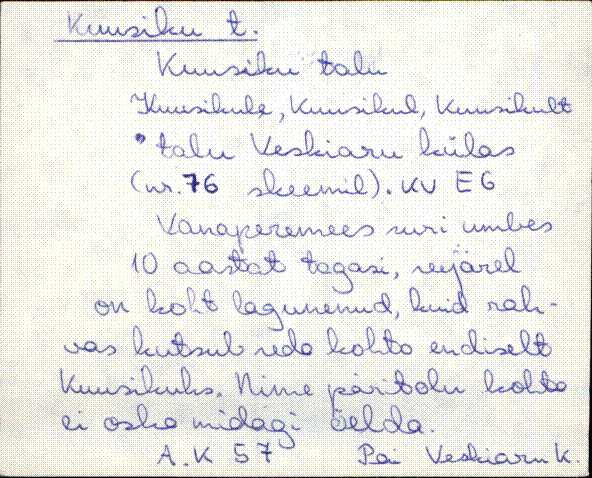 Kuusiku t.
Kuusiku talu
Kuusikule, Kuusikul, Kuusikult
talu Veskiaru külas
(nr. 76 skeemil). KV E6
Vanaperemees suri umbes
10 aastat tagasi, seejärel
on koht lagunenud, kuid rah-
vas kutsub seda kohta endiselt
Kuusikuks. Nime päritolu kohta
ei oska midagi öelda.
A.K 57 Pai Veskiaru k.